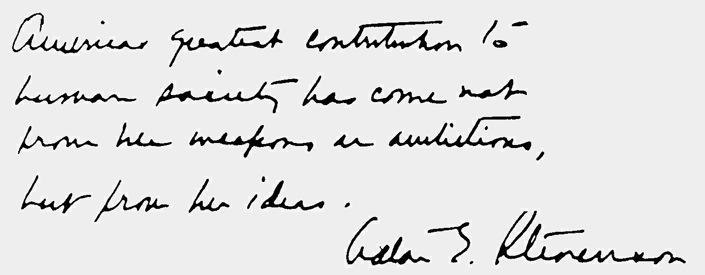 Americas greatest contribution to
human society has come not
from her weapons or ambitions,
but from her ideas.
Adlai E. Stevenson